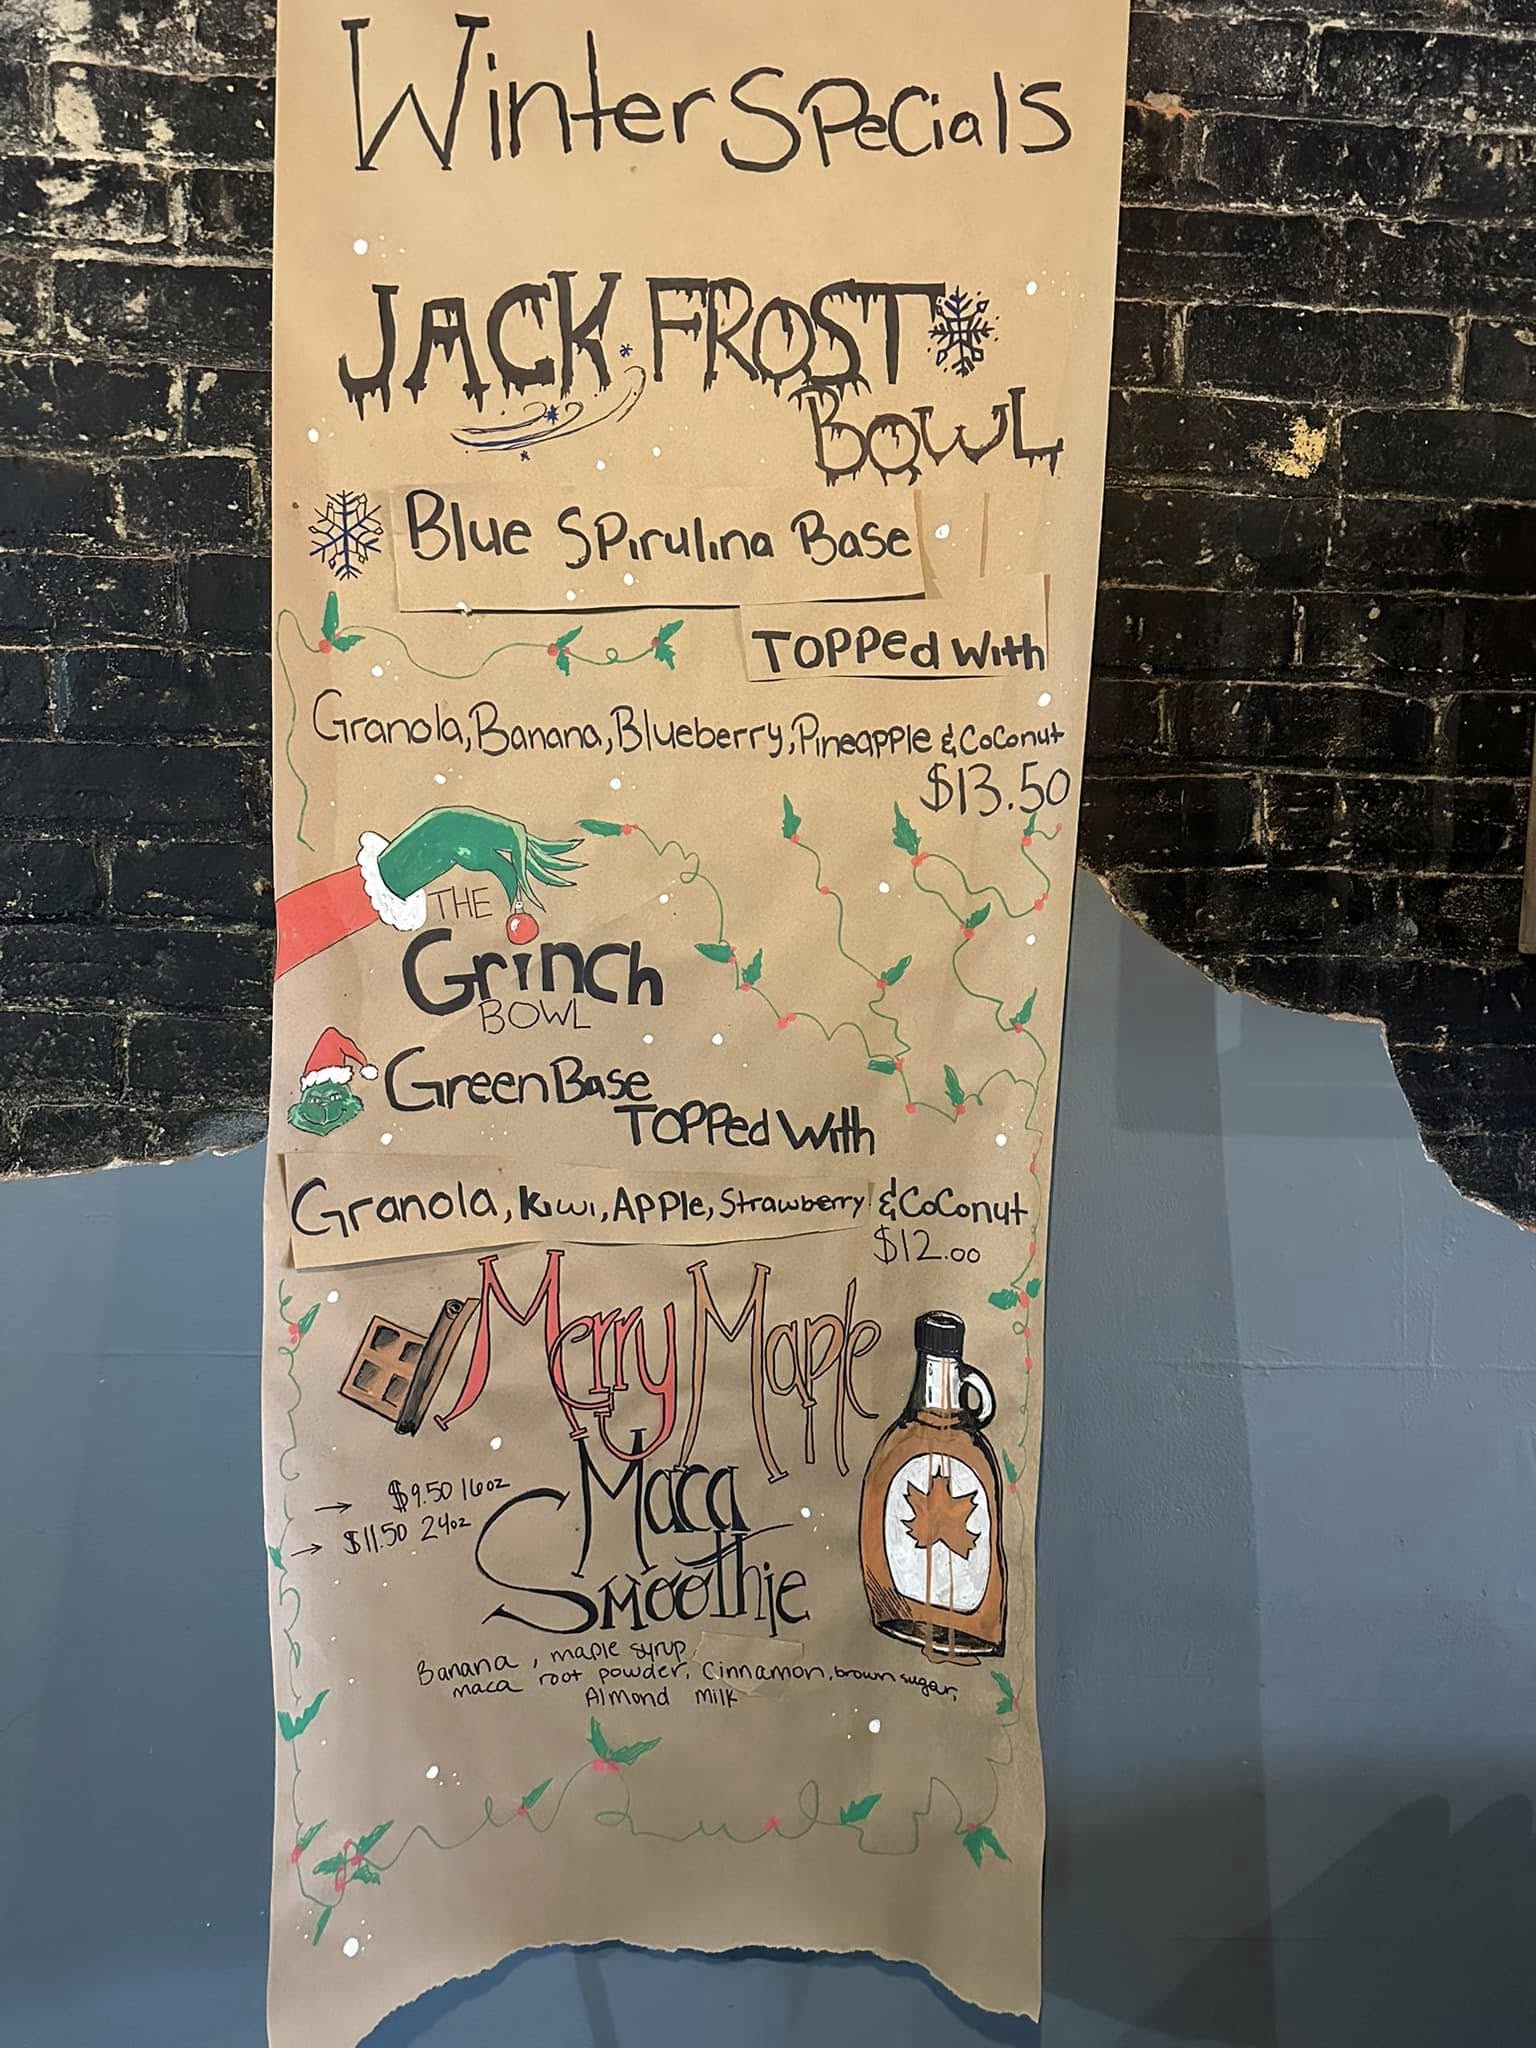 Winter Specials
JACK FROST
BOWL
Blue Spirulina Base
Topped With
Granola, Banana, Blueberry, Pineapple & Coconut
$13.50
THE
Grinch
BOWL
Green Base
Topped With
Granola, Kiwi, Apple, Strawberry & Coconut
$12.00
Merry Maple
Maca
Smoothie
→ $9.50 16oz
→ $11.50 24oz
Banana, maple syrup
maca root powder, Cinnamon, brown sugar,
Almond milk